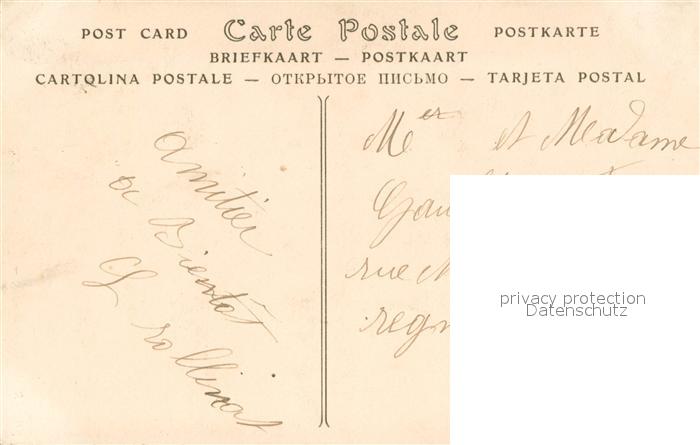 POST CARD Carte Postale POSTKARTE
BRIEFKAART — POSTKAART
CARTOLINA POSTALE — ОТКРЫТОЕ ПИСЬМО — TARJETA POSTAL
amitier
a Bientôt
L rollinat
Mer et Madame
Gau
rue
regn
privacy protection
Datenschutz